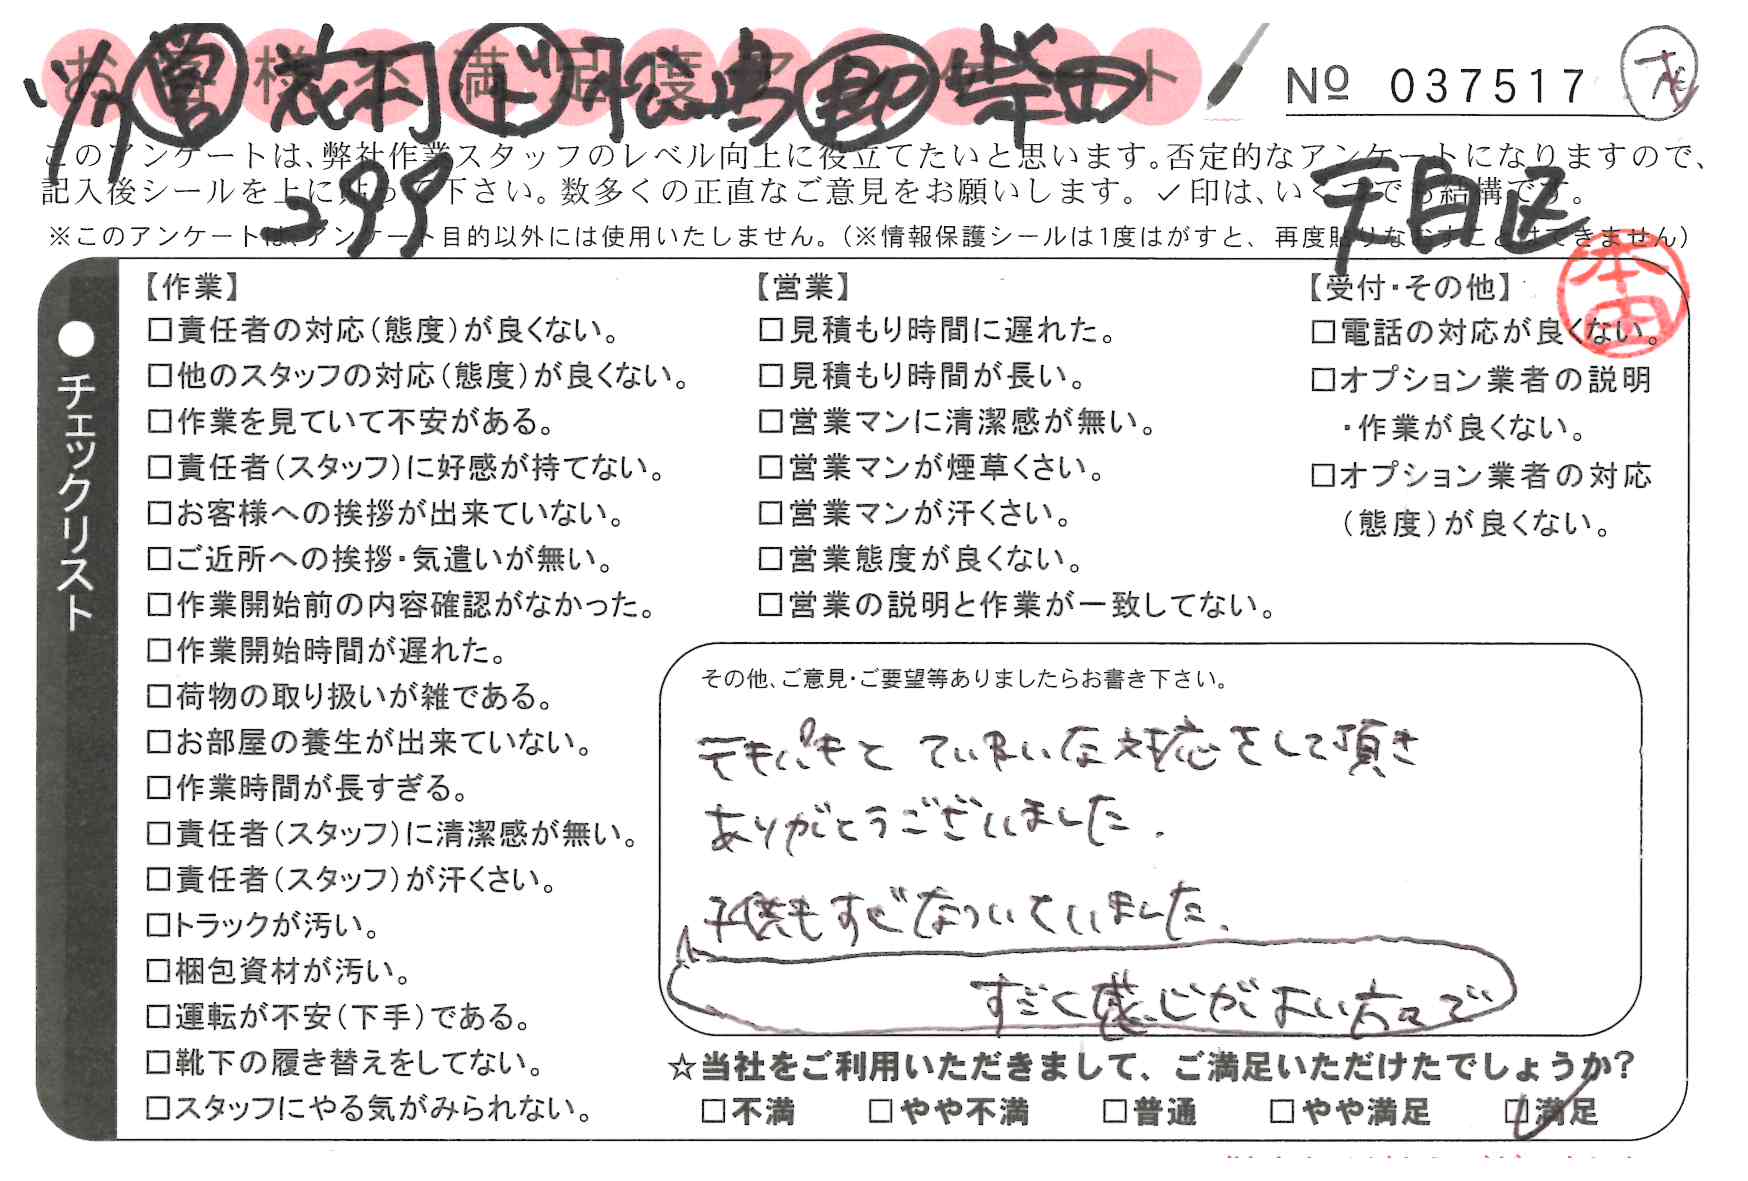 お客様不満足度アンケート
No 037517
1/19 営 衣不 下 松島 郡 柴田
299
天白区
このアンケートは、弊社作業スタッフのレベル向上に役立てたいと思います。否定的なアンケートになりますので、
記入後シールを上に貼って下さい。数多くの正直なご意見をお願いします。✓印は、いくつでも結構です。
※このアンケートは、アンケート目的以外には使用いたしません。(※情報保護シールは1度はがすと、再度貼りなおすことはできません)
本田
●チェックリスト
【作業】
□責任者の対応(態度)が良くない。
□他のスタッフの対応(態度)が良くない。
□作業を見ていて不安がある。
□責任者(スタッフ)に好感が持てない。
□お客様への挨拶が出来ていない。
□ご近所への挨拶・気遣いが無い。
□作業開始前の内容確認がなかった。
□作業開始時間が遅れた。
□荷物の取り扱いが雑である。
□お部屋の養生が出来ていない。
□作業時間が長すぎる。
□責任者(スタッフ)に清潔感が無い。
□責任者(スタッフ)が汗くさい。
□トラックが汚い。
□梱包資材が汚い。
□運転が不安(下手)である。
□靴下の履き替えをしてない。
□スタッフにやる気がみられない。
【営業】
□見積もり時間に遅れた。
□見積もり時間が長い。
□営業マンに清潔感が無い。
□営業マンが煙草くさい。
□営業マンが汗くさい。
□営業態度が良くない。
□営業の説明と作業が一致してない。
【受付・その他】
□電話の対応が良くない。
□オプション業者の説明
・作業が良くない。
□オプション業者の対応
(態度)が良くない。
その他、ご意見・ご要望等ありましたらお書き下さい。
テキパキと ていねいな対応をして頂き
ありがとうございました.
子供もすぐなついていました.
すごく感じがよい方々で
☆当社をご利用いただきまして、ご満足いただけたでしょうか?
□不満 □やや不満 □普通 □やや満足 ☑満足